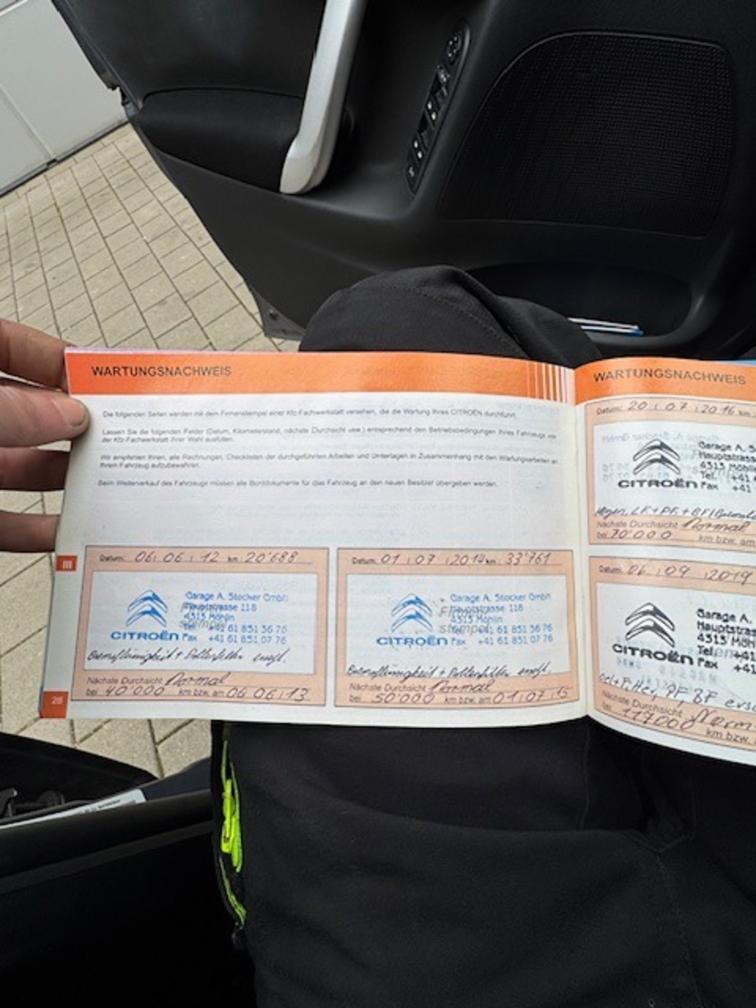 WARTUNGSNACHWEIS
Die folgenden Seiten werden mit dem Firmenstempel einer Kfz-Fachwerkstatt versehen, die die Wartung Ihres CITROËN durchführt.
Lassen Sie die folgenden Felder (Datum, Kilometerstand, nächste Durchsicht usw.) entsprechend den Betriebsbedingungen Ihres Fahrzeugs von
der Kfz-Fachwerkstatt Ihrer Wahl ausfüllen.
Wir empfehlen Ihnen, alle Rechnungen, Checklisten der durchgeführten Arbeiten und Unterlagen in Zusammenhang mit den Wartungsarbeiten an
Ihrem Fahrzeug aufzubewahren.
Beim Weiterverkauf des Fahrzeugs müssen alle Borddokumente für das Fahrzeug an den neuen Besitzer übergeben werden.
III
Datum: 06.06.12 km: 20'688
Garage A. Stocker GmbH
Hauptstrasse 118
4313 Möhlin
Tel. +41 61 851 36 76
Fax +41 61 851 07 76
CITROËN
Bremsflüssigkeit + Pollenfilter
Nächste Durchsicht Normal
bei 40'000 km bzw. am 06.06.13
Datum: 01.07.2014 km: 33'761
Garage A. Stocker GmbH
Hauptstrasse 118
4313 Möhlin
Tel. +41 61 851 36 76
Fax +41 61 851 07 76
CITROËN
Bremsflüssigkeit + Pollenfilter
Nächste Durchsicht Normal
bei 50'000 km bzw. am 01.07.15
28
WARTUNGSNACHWEIS
Datum: 20.07.2016 km:
Garage A.
Hauptstrasse
4313 Möhl
Tel. +41
Fax +41
CITROËN
Nächste Durchsicht Normal
bei 70'000
Datum: 06.09.2019
Garage A.
Hauptstrasse
4313 Möhl
Tel. +41
Fax +41
CITROËN
Nächste Durchsicht Norm
bei 117'000 km bzw. a